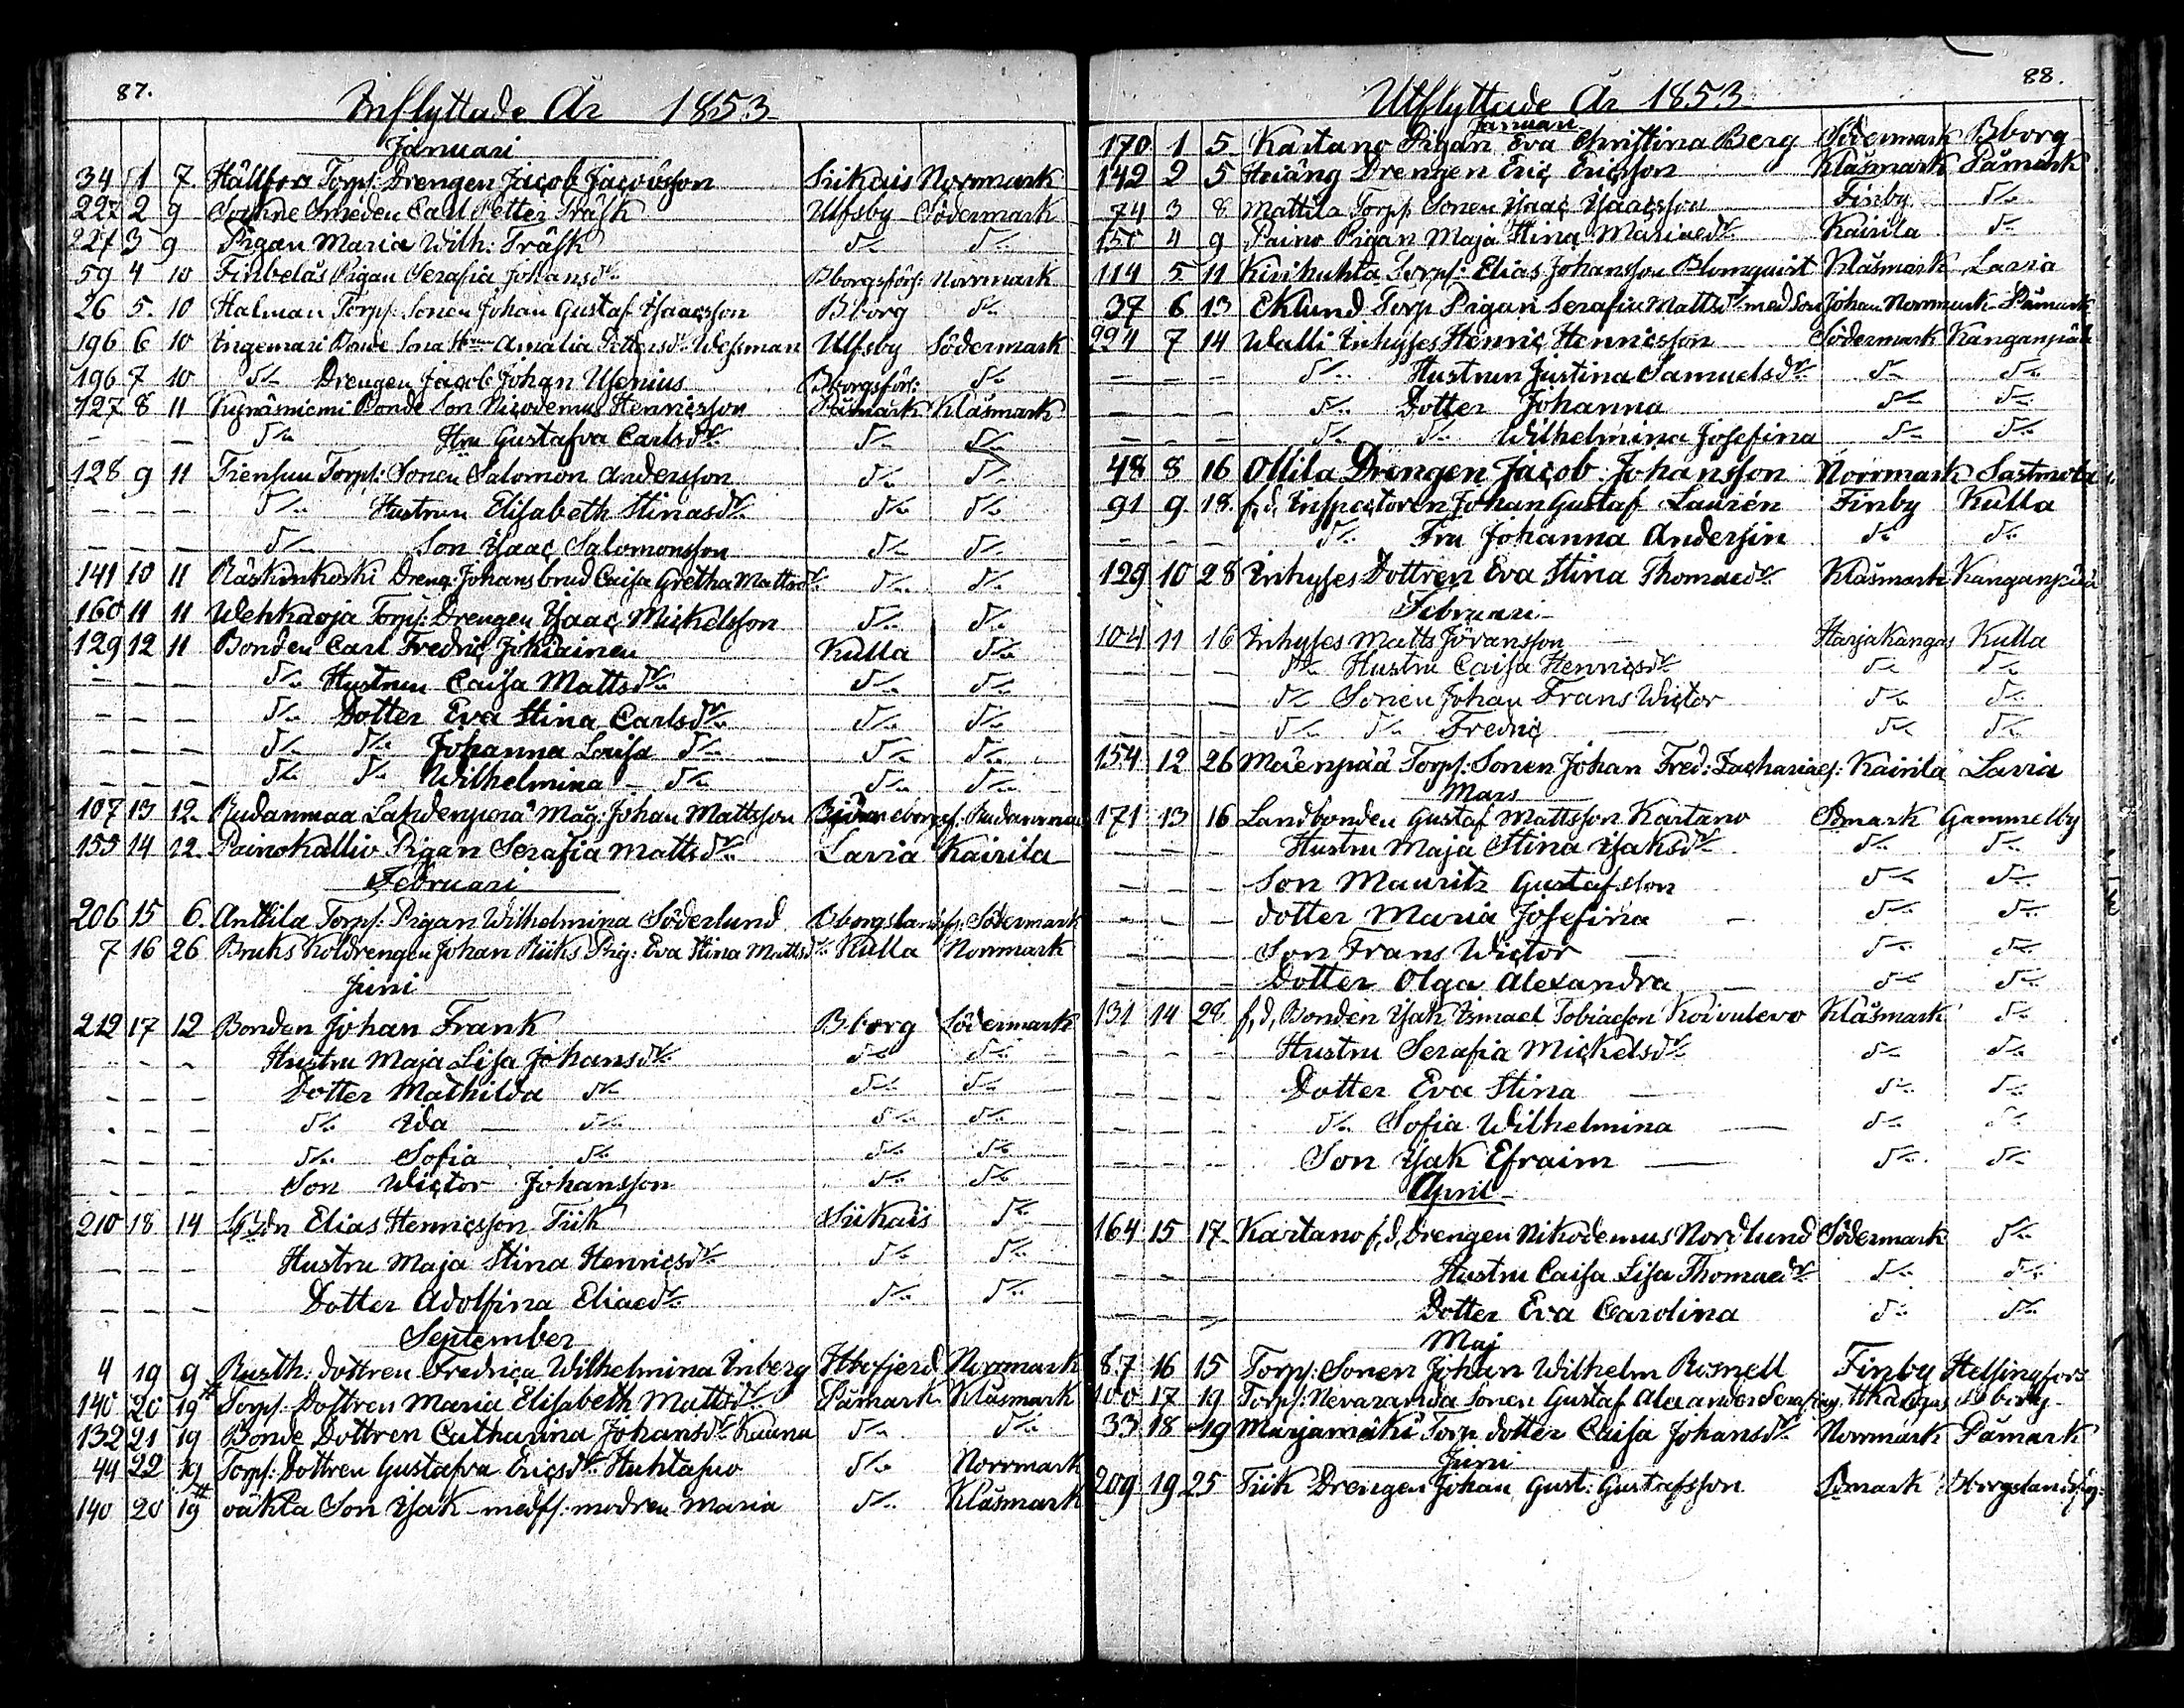 87.
Inflyttade År 1853
Januari
34 1 7. Hällfors Torps: Drengen Jacob Jacobsson Siikais Norrmark
227 2 9 Sockne Smeden Carl Petter Träsk Ulfsby Södermark
227 3 9 Pigan Maria Wilh: Träsk d:o d:o
59 4 10 Pigan Serafia Johansdr Bborgsförs: Norrmark
26 5. 10 Halman Torps: Sonen Johan Gustaf Isaacsson Bborg d:o
196 6 10 Ingemari Bonde Sona Amalia Pettersdr Wessman Ulfsby Södermark
196 7 10 d:o Drengen Jacob Johan Usenius Bborgsförs: d:o
127 8 11 Kynäsniemi Bonde Son Nicodemus Henricsson Påmark Klåsmark
– – – d:o Hru Gustafva Carlsdr d:o d:o
128 9 11 Torps: Sonen Salomon Andersson d:o d:o
– – – d:o Hustrun Elisabeth Stinasdr d:o d:o
– – – d:o Son Isaac Salomonsson d:o d:o
141 10 11 Dreng: Johans brud Caisa Gretha Mattsdr d:o d:o
160 11 11 Wehkaoja Torps: Drengen Isaac Mickelsson d:o d:o
129 12 11 Bonden Carl Fredric Jokiainen Kulla d:o
– – – d:o Hustrun Caisa Mattsdr d:o d:o
– – – d:o Dotter Eva Stina Carlsdr d:o d:o
– – – d:o d:o Johanna Lovisa d:o d:o d:o
– – – d:o d:o Wilhelmina – d:o d:o d:o
107 13 12. Rudanmaa Lahdenperä Måg: Johan Mattsson Björneborgsf. Rudanmaa
155 14 12. Painokallio Pigan Serafia Mattsdr Lavia Kairila
Februari
206 15 6. Anttila Torps: Pigan Wilhelmina Söderlund Bborgslandsf: Södermark
7 16 26 Bruks Koldrengen Johan Riiks Pig: Eva Stina Mattsdr Kulla Norrmark
Juni
212 17 12 Bonden Johan Frank Bborg Södermark
– – – Hustru Maja Lisa Johansdr d:o d:o
– – – Dotter Mathilda d:o d:o d:o
– – – d:o Ida – d:o d:o d:o
– – – d:o Sofia d:o d:o d:o
– – – Son Wictor Johansson d:o d:o
210 18 14 Elias Henricsson Tiik Siikais d:o
– – – Hustru Maja Stina Henricsdr d:o d:o
– – – Dotter Adolfina Eliaedr d:o d:o
September
4 19 9 Rusth: dottren Fredrica Wilhelmina Inberg Hvitofjerd Norrmark
140 20 19 # Torps: Dottren Maria Elisabeth Mattsdr Påmark Klåsmark
132 21 19 Bonde Dottren Catharina Johansdr Kauna d:o d:o
44 22 19 Torps: Dottren Gustafva Ericsdr Huhtasuo d:o Norrmark
140 20 19 # oäkta Son Isak – medfl. modren Maria d:o Klåsmark
88.
Utflyttade År 1853
Januari
170 1 5 Kartano Pigan Eva Christina Berg Södermark Bborg
142 2 5 Drengen Eric Ericsson Klåsmark Påmark
74 3 8 Mattila Torps: Sonen Isaac Isaacsson Finby d:o
150 4 9 Paino Pigan Maja Stina Mariaedr Kairila d:o
114 5 11 Kurihuhta Torps: Elias Johansson Blomquist Klåsmark Lavia
37 6 13 Eklund Torp Pigan Serafia Mattsdr med Son Johan Norrmark Påmark
224 7 14 Walli Inhyses Henric Henricsson Södermark Kanganpää
– – – d:o Hustrun Justina Samuelsdr d:o d:o
– – – d:o Dotter Johanna d:o d:o
– – – d:o d:o Wilhelmina Josefina d:o d:o
48 8 16 Ollila Drengen Jacob Johansson Norrmark Sastmola
91 9. 18. f,d, Inspectoren Johan Gustaf Laurén Finby Kulla
– – – d:o Fru Johanna Andersin d:o d:o
129 10 28 Inhyses Dottren Eva Stina Thomaedr Klåsmark Kanganpää
Februari
104 11 16 Inhyses Matts Jöransson Harjakangas Kulla
– – d:o Hustru Caisa Henricsdr d:o d:o
– – d:o Sonen Johan Frans Wictor d:o d:o
– – d:o d:o Fredric d:o d:o
154 12 26 Mäenpää Torps: Sonen Johan Fred: Zachariaes: Kairila Lavia
Mars
171 13 16 Landbonden Gustaf Mattsson Kartano Smark Gammelby
– – – Hustru Maja Stina Isaksdr d:o d:o
– – – Son Mauritz Gustafsson d:o d:o
– – – dotter Maria Josefina – d:o d:o
– – – Son Frans Wictor – d:o d:o
– – – Dotter Olga Alexandra – d:o d:o
131 14 28 f,d, Bonden Isak Ismael Tobiaeson Koivulevo Klåsmark d:o
– – – Hustru Serafia Mickelsdr d:o d:o
– – – Dotter Eva Stina – d:o d:o
– – – d:o Sofia Wilhelmina – d:o d:o
– – – Son Isak Efraim – d:o d:o
April
164 15 17. Kartano f,d, Drengen Nikodemus Nordlund Södermark d:o
– – – Hustru Caisa Lisa Thomaedr d:o d:o
– – – Dotter Eva Carolina d:o d:o
Maj
87 16 15 Torps: Sonen Johan Wilhelm Romell Finby Helsingfors
100 17 19 Torps: Nevaranda Sonen Gustaf Alexander Bborg
33 18 19 Marjamäki Torp dotter Caisa Johansdr Norrmark Påmark
Juni
209 19 25 Tiik Drengen Johan Gust: Gustafsson Smark Bborgslandsf: